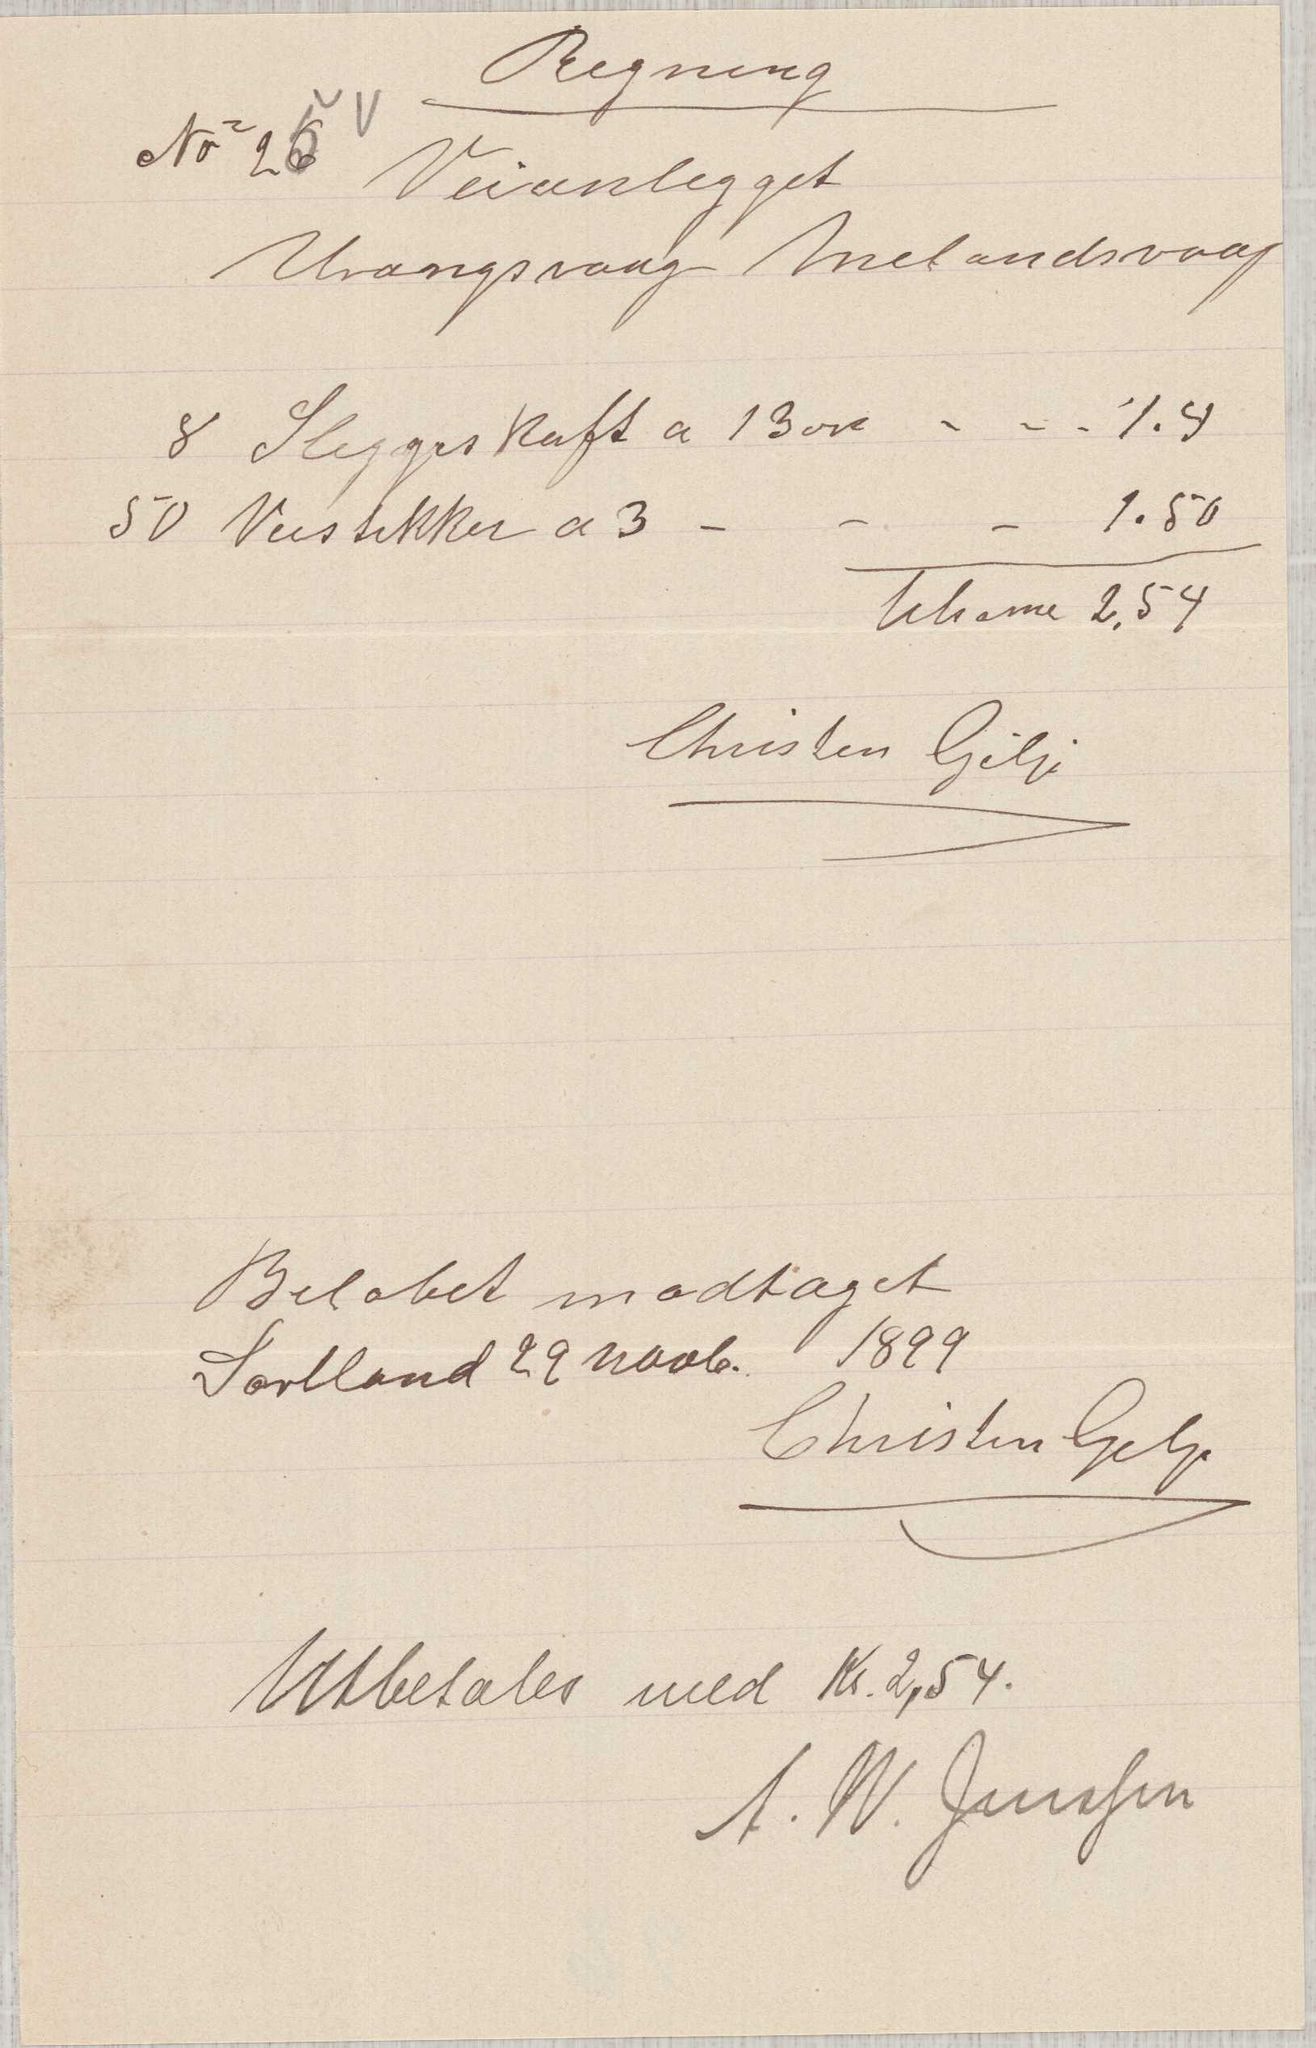 Regning
No 26
Veianlegget
Urangsvaag Melandsvaag
8 Sleggeskaft a 13 øre - - - 1.4
50 Veistikker a 3 - - - 1.50
tilsame 2.54
Christen Gilje
Beløbet modtaget
Sortland 29 novb. 1899
Christen Gilje
Utbetales med Kr. 2,54.
A. W. Jenssen